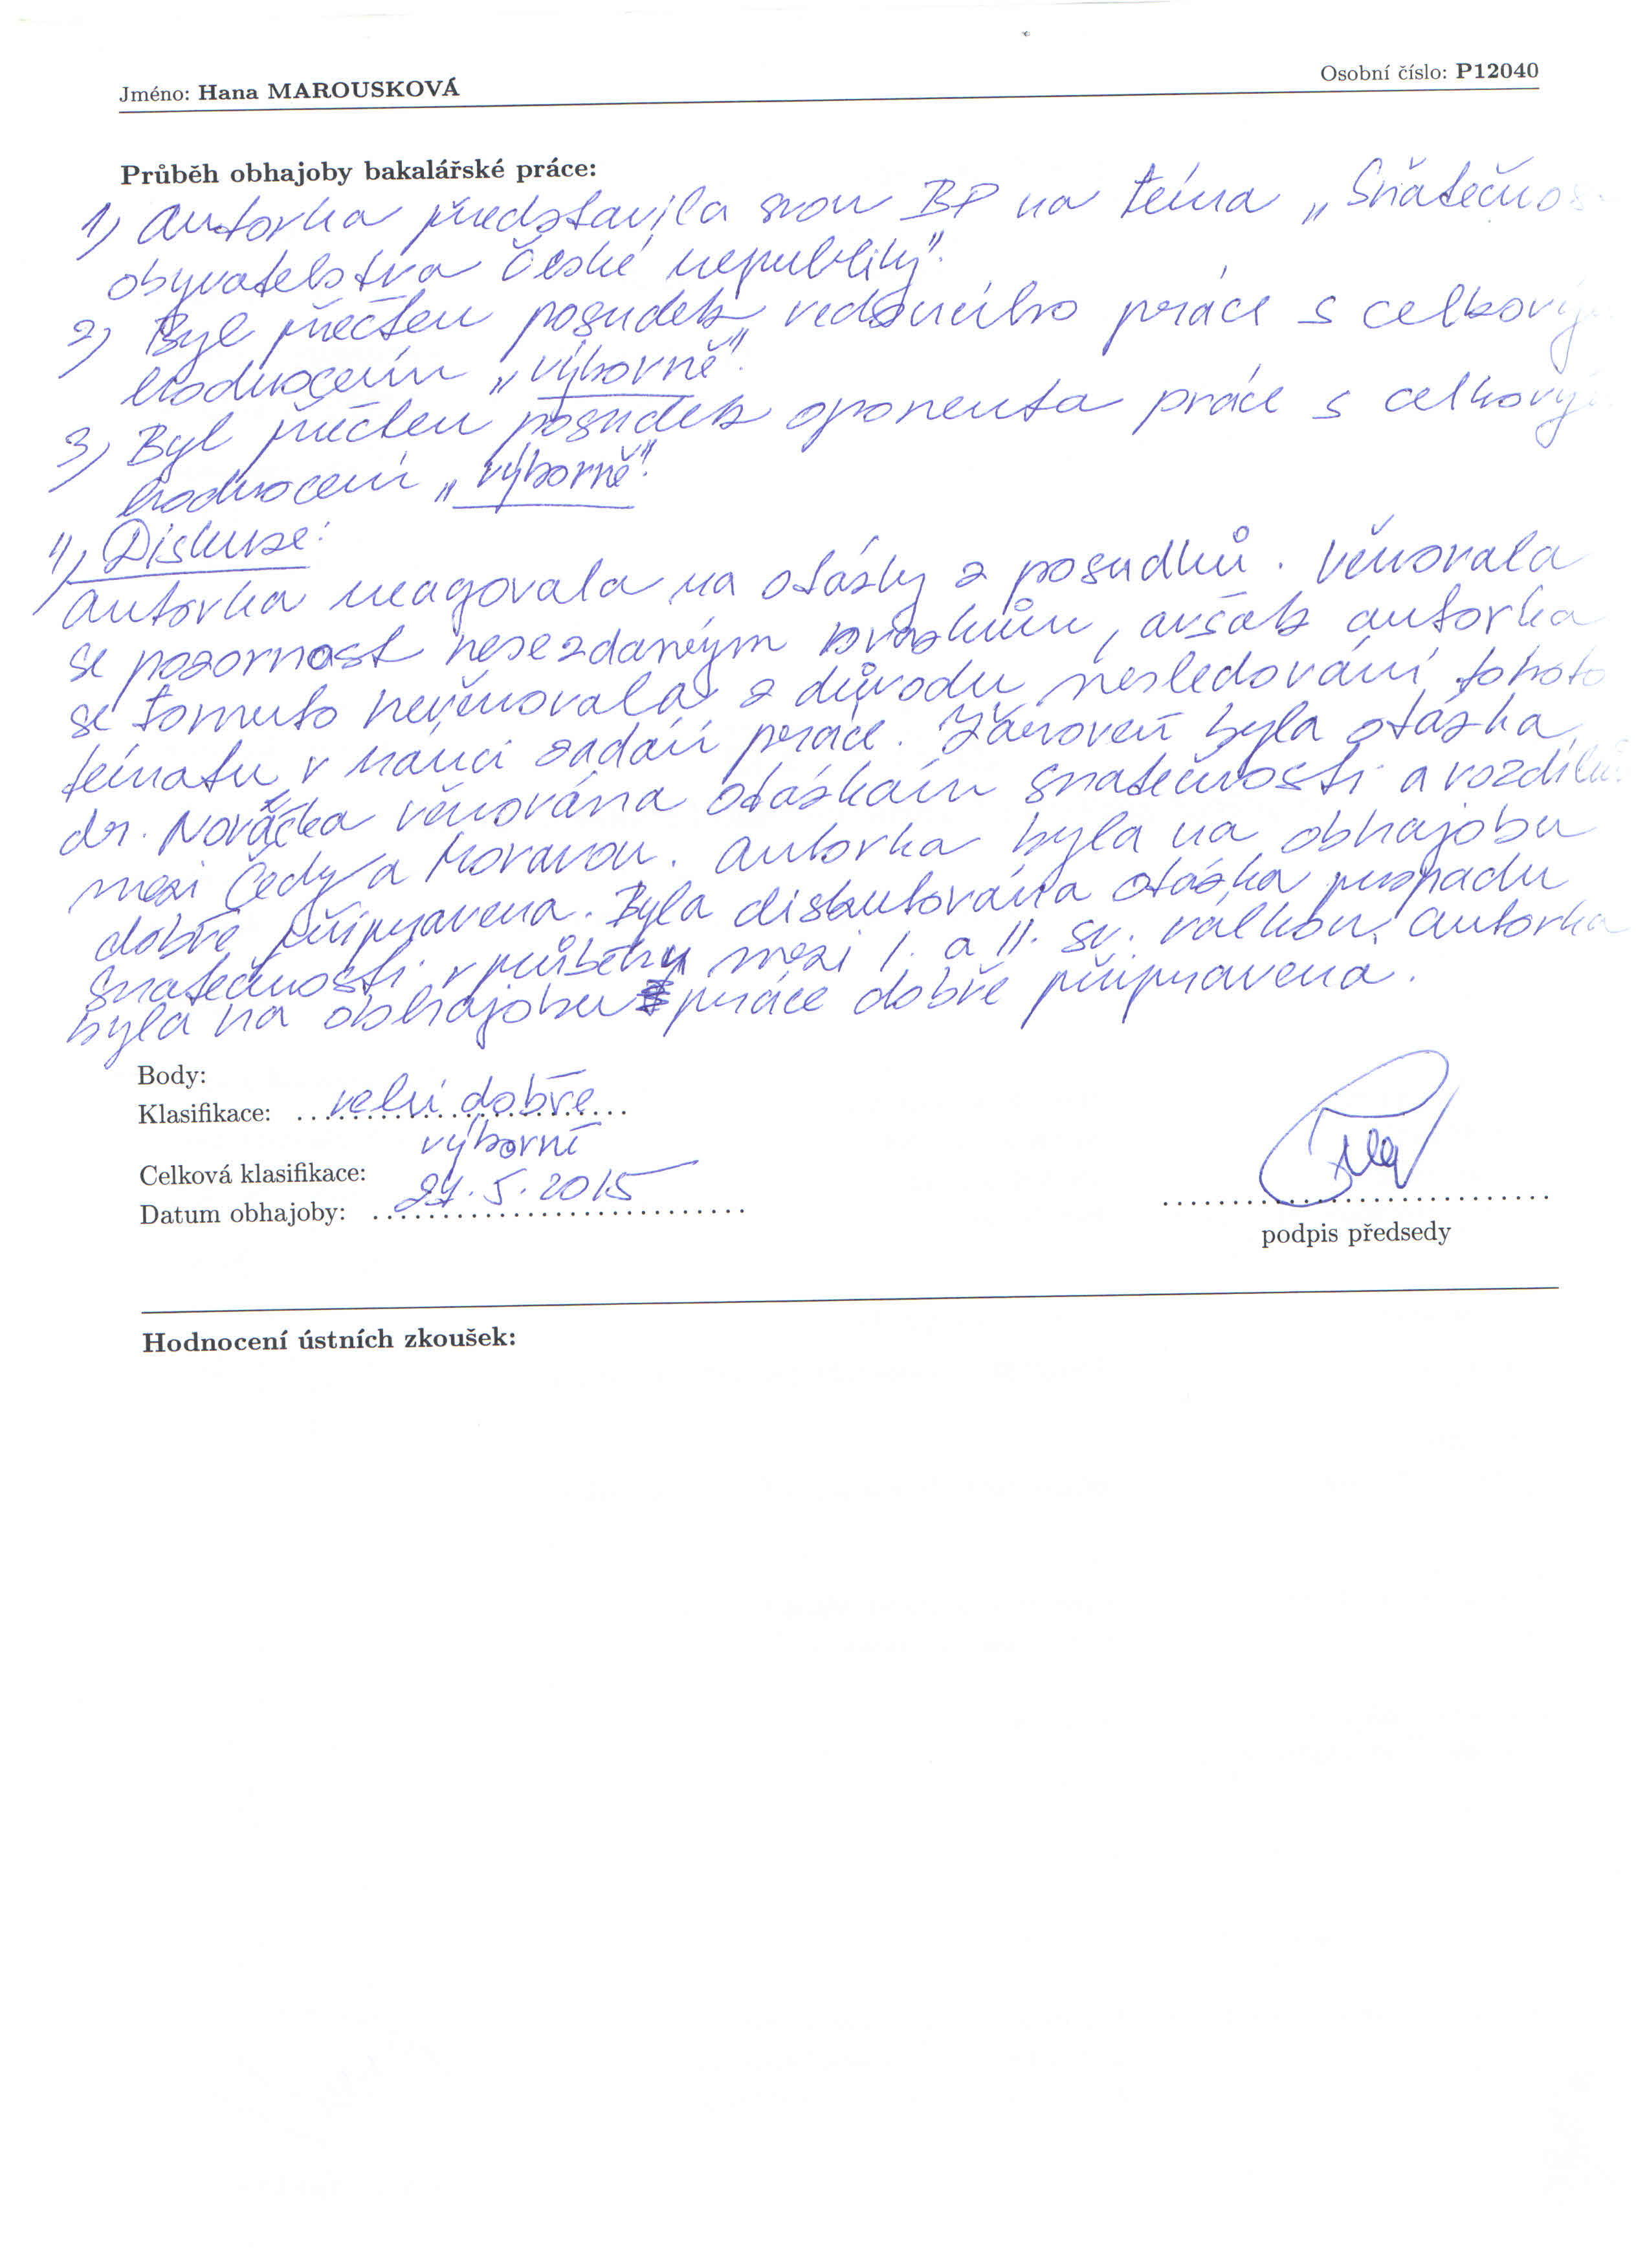 Jméno: Hana MAROUSKOVÁ Osobní číslo: P12040
Průběh obhajoby bakalářské práce:
1) Autorka představila svou BP na téma „Sňatečnos
obyvatelstva České republiky".
2) Byl přečten posudek vedoucího práce s celkovým
hodnocením „výborně".
3) Byl přečten posudek oponenta práce s celkovým
hodnocení „výborně".
4) Diskuse:
Autorka reagovala na otázky z posudků. Věnovala
se pozornost nesezdaným svazkům, avšak autorka
se tomuto nevěnovala z důvodu nesledování tohoto
tématu v rámci zadání práce. Zároveň byla otázka
dr. Nováčka věnována otázkám sňatečnosti a rozdílů
mezi Čechy a Moravou. Autorka byla na obhajobu
dobře připravena. Byla diskutována otázka propadu
sňatečnosti v průběhu mezi I. a II. sv. válkou. Autorka
byla na obhajobu práce dobře připravena.
Body:
Klasifikace: velmi dobře
výborně
Celková klasifikace:
Datum obhajoby: 27.5.2015
podpis předsedy
Hodnocení ústních zkoušek: